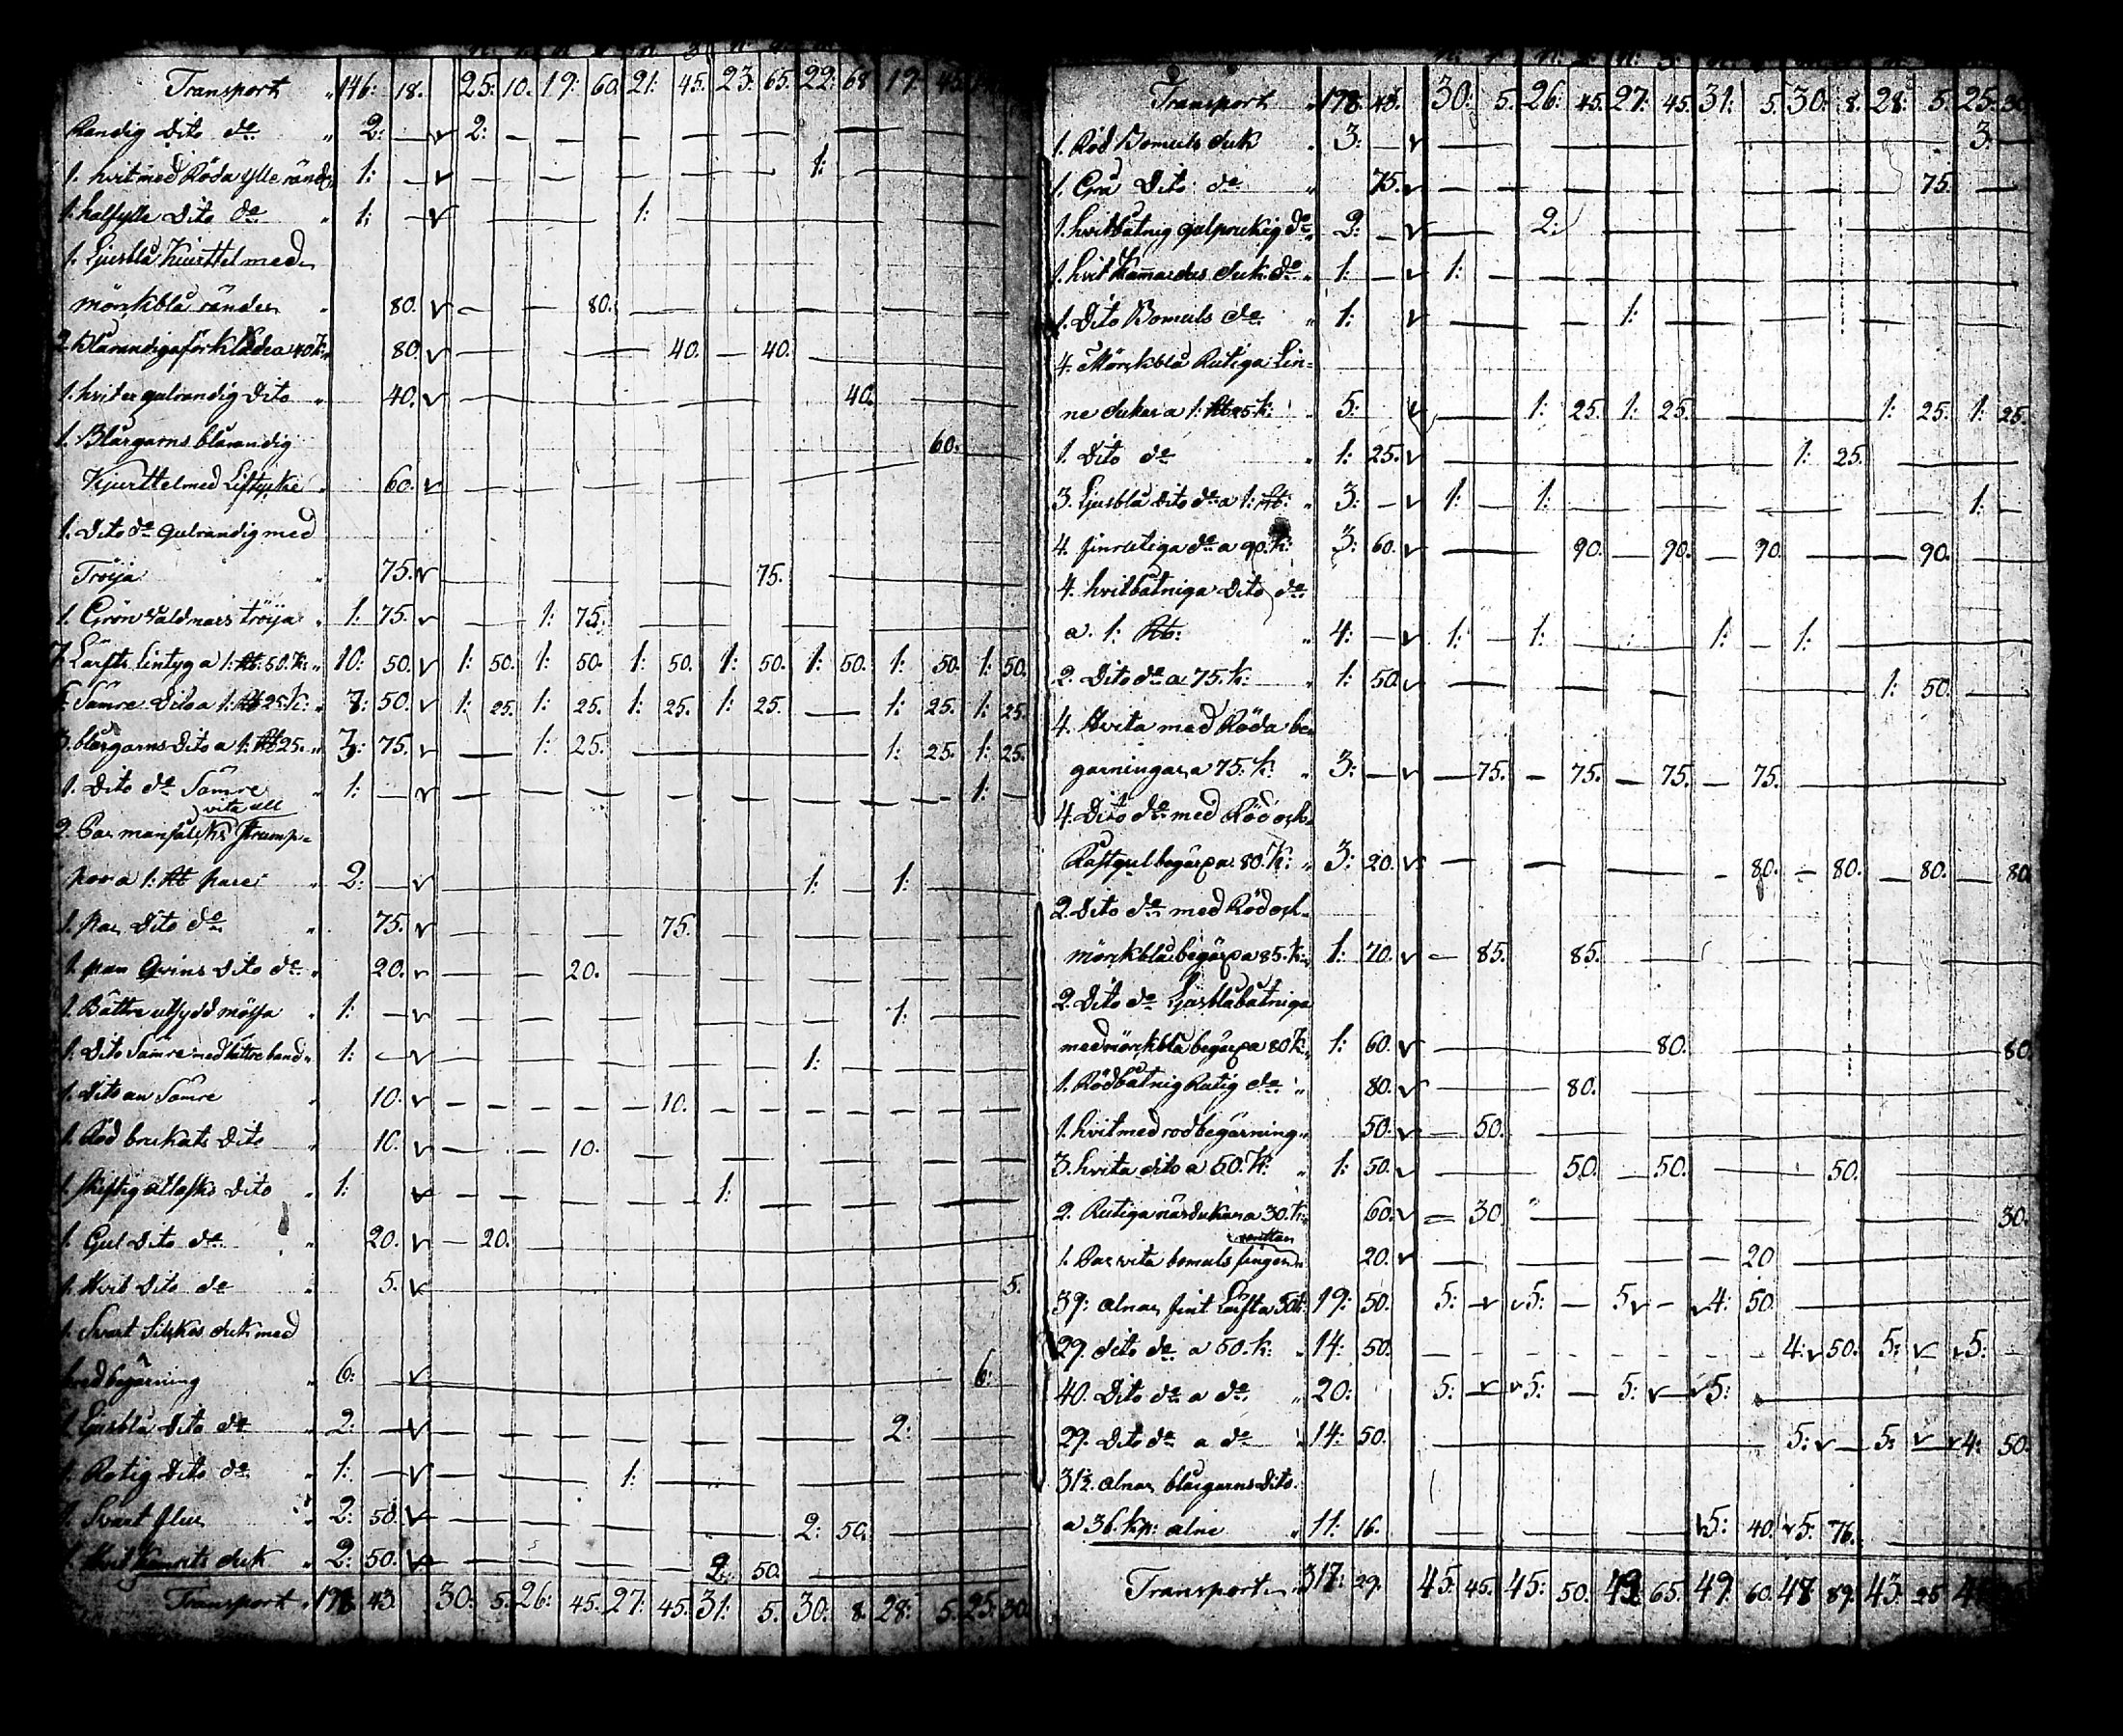 Transport " 146: 18. 25: 10. 19: 60. 21: 45. 23: 65. 22: 68 19: 45.
Randig Dito do " 2: — v 2: — — — — — —
1. hvit med Röda ylle ränder 1: — v — — — — — 1: —
1. halfylle Dito do " 1: — v — — 1: — — —
1. Ljusblå Kiorttel med
mörkblå ränder " 80. v — — 80. — — — —
2. blårandiga förkläde a 40 k " 80. v — — — 40. — 40. —
1. hvit en gulrandig Dito " 40. v — — — — 40. —
1. Blårgarns blårandig 60.
Kjorttel med Liftycke " 60. v — — — — —
1. Dito do Gulrandig med
Tröija " 75. v — — — 75. —
1. Grön valdmars tröija " 1: 75. v — 1: 75. — — —
7. Lärfts Lintyg a 1: Rb: 50. k: " 10: 50. v 1: 50. 1: 50. 1: 50. 1: 50. 1: 50. 1: 50. 1: 50.
6. Sämre Dito a 1: Rb 25 k: " 7: 50. v 1: 25. 1: 25. 1: 25. 1: 25. — 1: 25. 1: 25.
3. blårgarns Dito a 1: Rb 25. " 3: 75. v — 1: 25. — 1: 25. 1: 25.
1. Dito do Sämre " 1: — v — — — — — 1: —
vita ull
2. Par manfalcks Strump=
por a 1: Rb paret " 2: — v — 1: — 1: —
1. par Dito do " 75. v — — 75. — — —
1. par Qvins Dito do " 20. v — — 20. — — —
1. Bättre utsydd mössa " 1: — v — — — — 1: —
1. Dito Sämre med bättre band " 1: — v — — — 1: —
1. Dito än Sämre " 10. v — — — — — 10. — — — —
1. Röd brukats Dito " 10. v — — 10. — — —
1. skiftig atlasks Dito " 1: v — — — 1: — — —
1. Gul Dito do " 20. v — 20. —
1. Hvit Dito do " 5. v — 5.
1. Svart Silkes duk med
bred begärning " 6: v — 6:
1. Ljusblå Dito do " 2: — v — — — — 2: —
1. Rotig Dito do " 1: — v — — 1: — — —
1. Svart flor " 2: 50. v — — — 2: 50. —
1. Hvid Kamrits duk " 2: 50. v — — — 2: 50. —
Transport " 178. 43. 30: 5. 26: 45. 27: 45. 31: 5. 30: 8. 28: 5. 25: 30.
Transport " 178. 43. 30: 5. 26: 45. 27: 45. 31: 5. 30: 8. 28: 5. 25: 30
1. Röd Bomuls duk " 3: — v — — — — 3: —
1. Grå Dito do " 75. v — — — — 75. —
1. hvitbåtnig gulprickig do " 2: — v — 2: — — —
1. hvit Kamardus duk do " 1: — v 1: — — — —
1. Dito Bomuls do " 1: v — — 1: — — —
4. Mörckblå Rutiga Lin=
ne dukar a 1: Rb 25 k: " 5: v — 1: 25. 1: 25. — 1: 25. 1: 25.
1. Dito do " 1: 25. v — — — 1: 25. —
3. Ljusblå Dito do a 1: Rb: " 3: — v 1: — 1: — — 1: —
4. finrutiga do a 90. k: 3: 60. v — — 90. — 90. — 90. — 90. —
4. hvitbåtniga Dito do
a. 1: Rb: " 4: — v 1: — 1: 1: — 1: —
2. Dito do a 75. k: " 1: 50. v — — — 1: 50. —
4. Hvita med Röda be=
garningar a 75. k: " 3: — v — 75. — 75. — 75. — 75. —
4. Dito do med Röd och
Rastgul begärg a 80. k: " 3: 20. v — — — 80. — 80. — 80. — 80
2. Dito do med Röd och
mörkblå begärg a 85. k: " 1: 70. v — 85. 85. — — —
2. Dito do Ljusblåbåtniga
med mörckblå begärg a 80 k: " 1: 60. v — — 80. — — 80.
1. Rödbåtnig Rutig do " 80. v — — 80. — — —
1. hvit med rod begärning " 50. v — 50. — — —
3. hvita dito a 50. k: " 1: 50. v — — 50. — 50. — 50. —
2. Rutiga näsdukar a 30. k: " 60. v — 30 — — 30.
vanttar
1. Par vita bomuls finger " 20. v — — — 20 —
39: alnar fint Lärft a 50 k: 19: 50. 5: — v v 5: — 5 v — v 4: 50. —
29. dito do a 50. k: " 14: 50. — — — — 4: v 50. 5: v v 5: —
40. Dito do a do " 20: 5: — v v 5: — 5: v — v 5: —
29. Dito do a do " 14: 50. — 5: v — 5: v — v 4: 50.
31½. alnar blårgarns Dito
a 36. kp: alne " 11: 16. — — — v 5: 40. v 5: 76. —
Transport " 317: 29. 45: 45. 45: 50. 49: 65. 49: 60. 48: 89. 43: 25